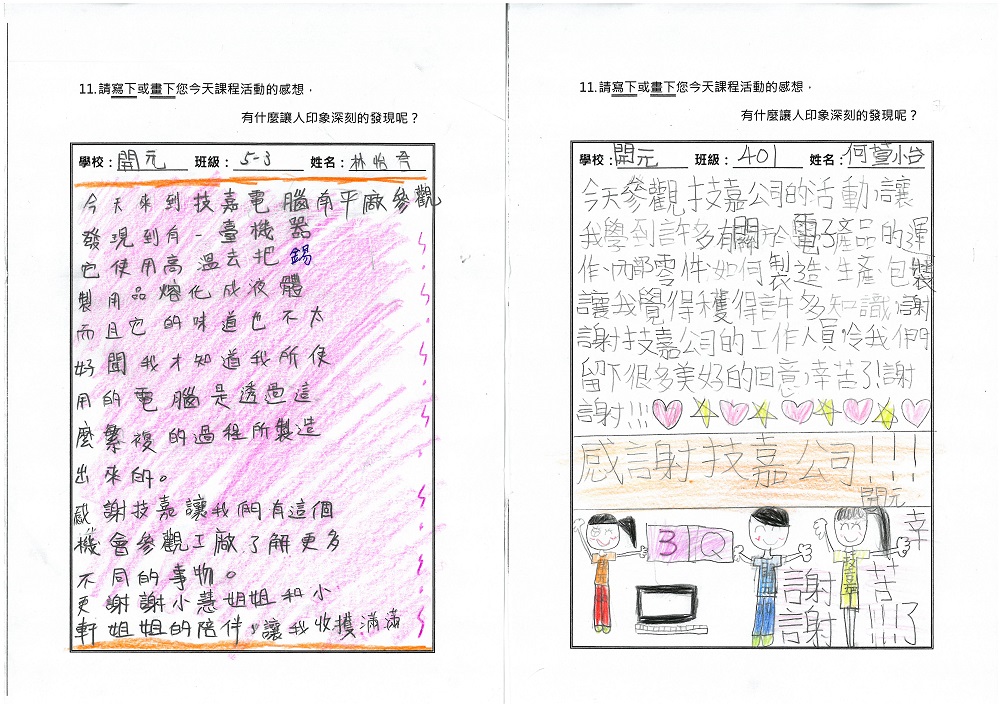 11.請寫下或畫下您今天課程活動的感想，
有什麼讓人印象深刻的發現呢？
學校：開元 班級：5-3 姓名：林怡
今天來到技嘉電腦南平廠參觀
發現到有一臺機器
它使用高溫去把錫
製用品熔化成液體
而且它的味道也不太
好聞我才知道我所使
用的電腦是透過這
麼繁複的過程所製造
出來的。
感謝技嘉讓我們有這個
機會參觀工廠了解更多
不同的事物。
更謝謝小慧姐姐和小
軒姐姐的陪伴，讓我收獲滿滿
11.請寫下或畫下您今天課程活動的感想，
有什麼讓人印象深刻的發現呢？
學校：開元 班級：401 姓名：何萱
今天參觀技嘉公司的活動，讓
我學到許多有關於電子產品的運
作、內部零件、如何製造、生產、包裝
讓我覺得穫得許多知識，謝
謝技嘉公司的工作人員，令我們
留下很多美好的回意，幸苦了!謝
謝!!!
感謝技嘉公司!!!
開元
3Q
技嘉
謝謝
幸苦了!!!